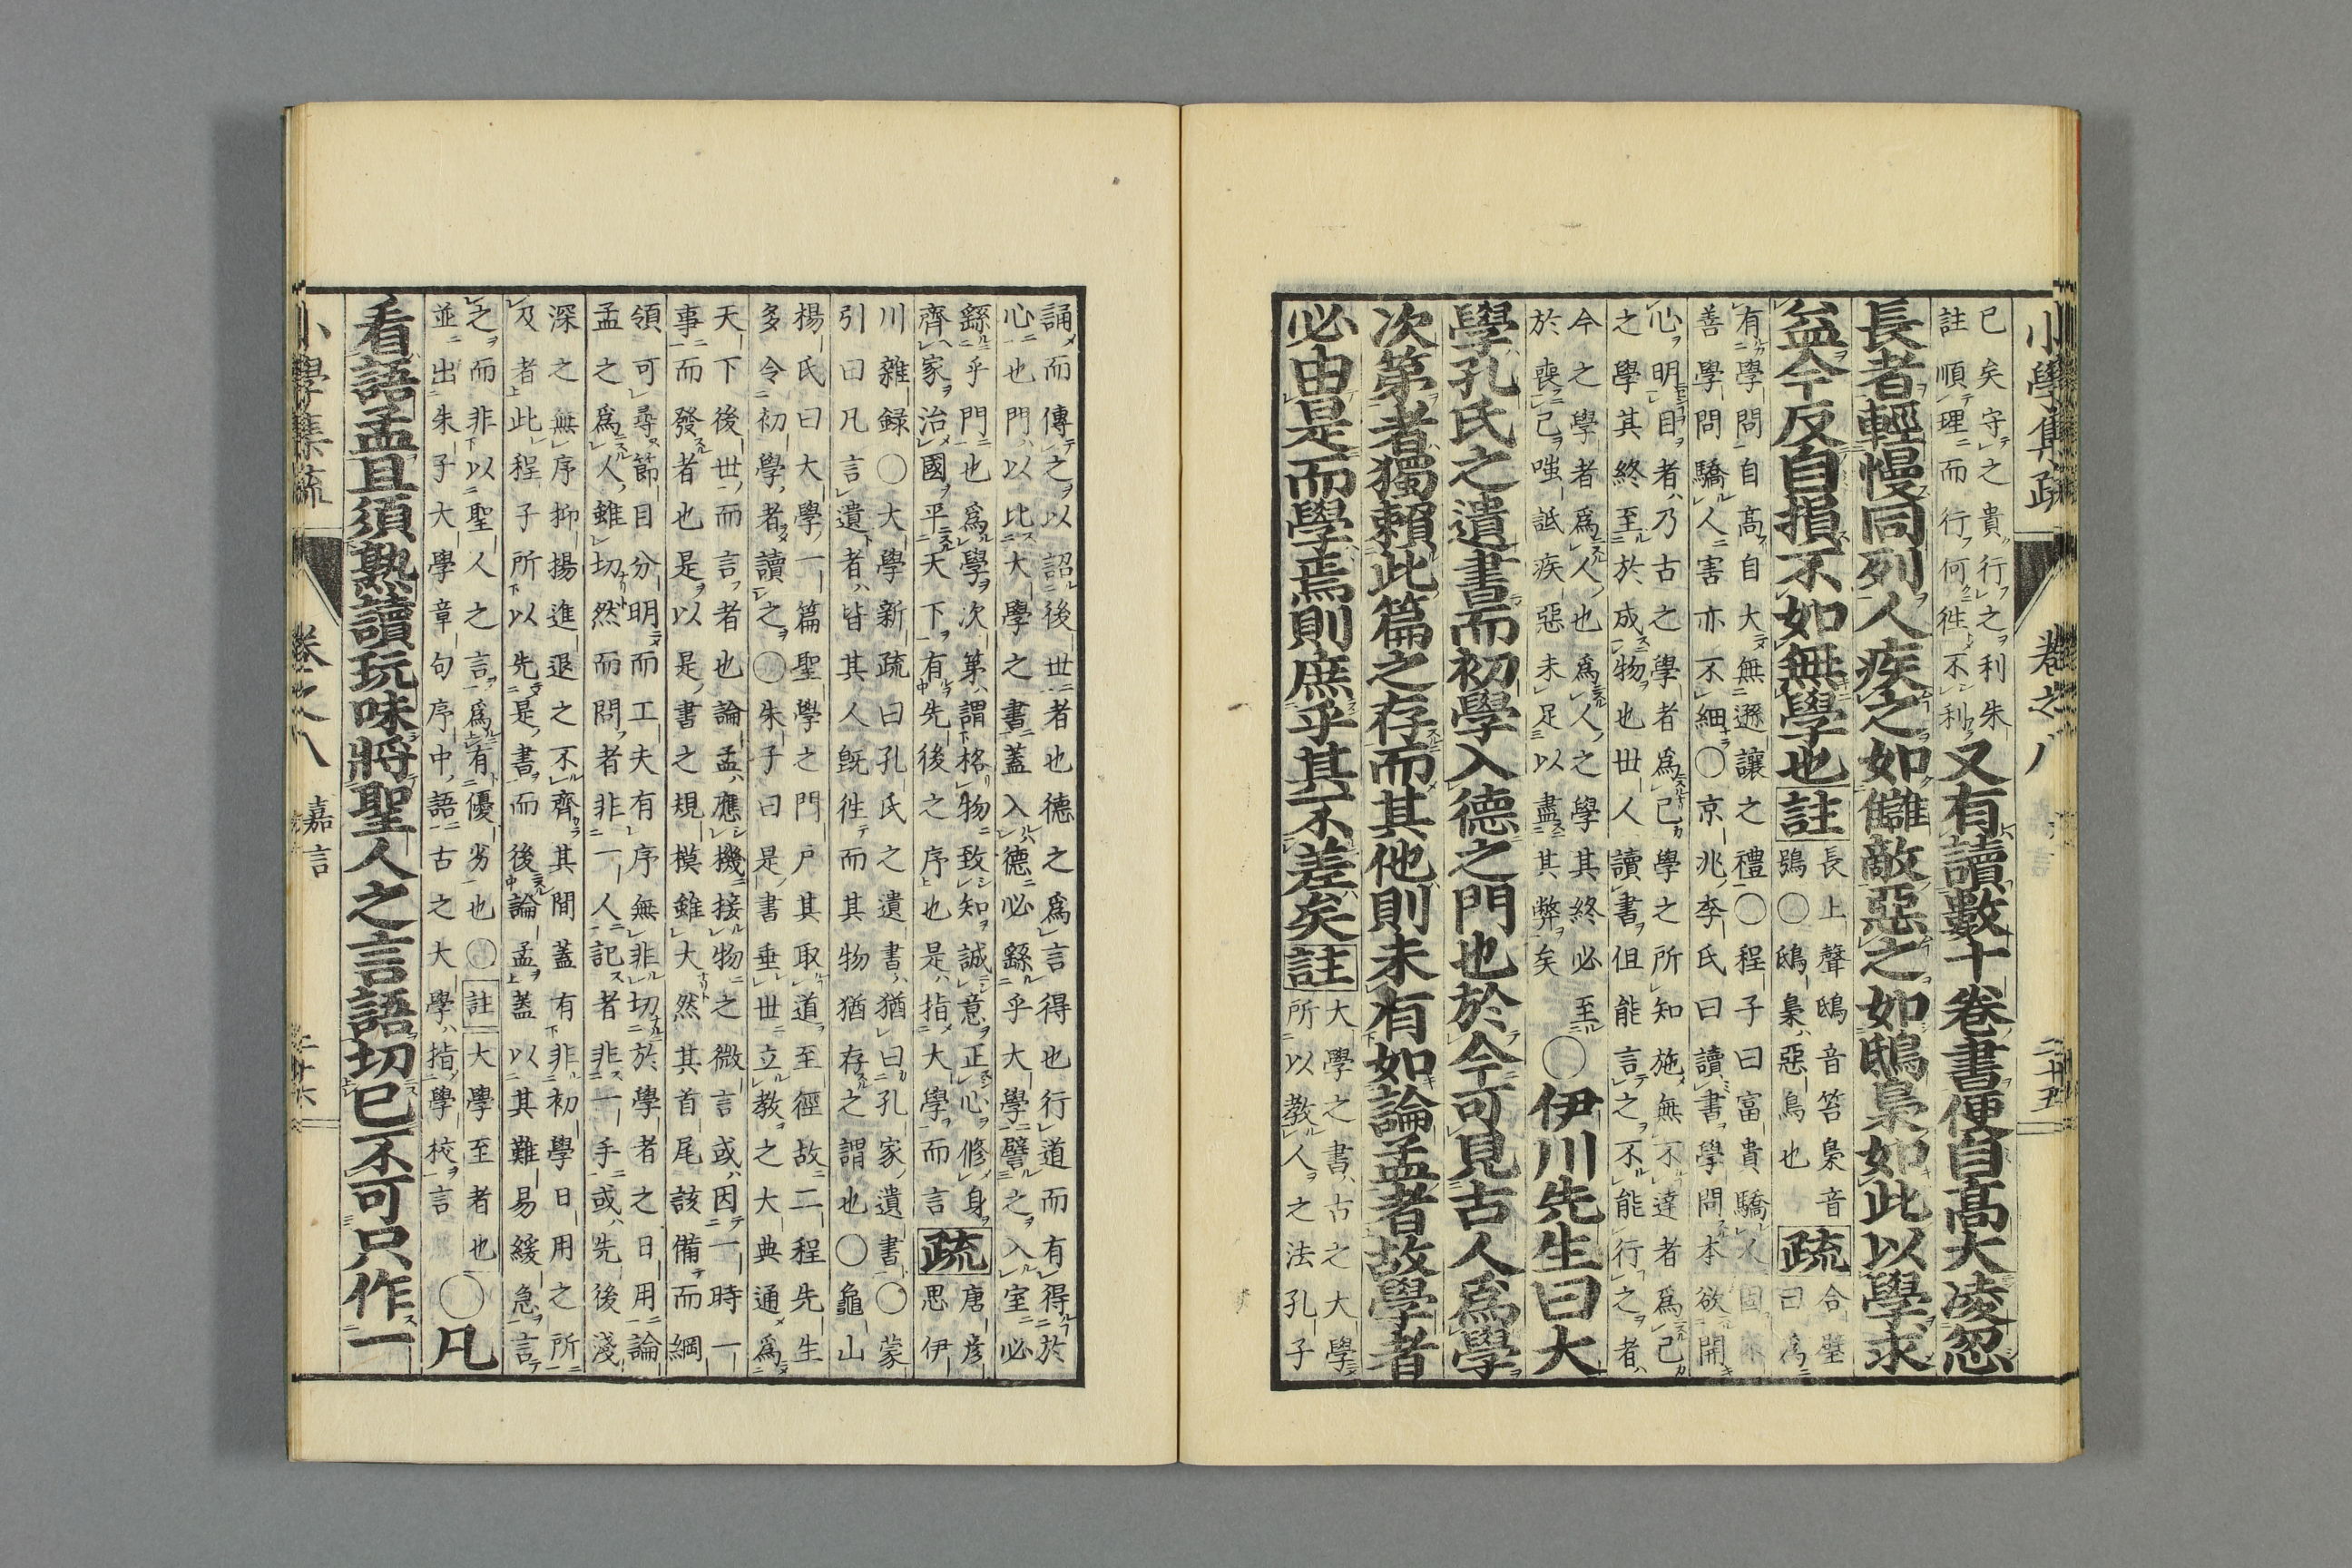 小學集疏 卷之八 二十五
已矣守之貴行之利朱
註順理而行何徃不利
又有讀數十卷書便自高大凌忽
長者輕慢同列人疾之如讎敵惡之如鴟梟如此以學求
益今反自損不如無學也 註
長上聲鴟音笞梟音
鴞〇鴟梟惡鳥也
疏
合璧
曰爲
有學問自高自大無遜讓之禮〇程子曰富貴驕人固不
善學問驕人害亦不細〇京兆李氏曰讀書學問本欲開
心明目者乃古之學者爲己學之所知施無不達者爲己
之學其終至於成物也世人讀書但能言之不能行之者
今之學者爲人也爲人之學其終必至
於喪己嗤詆疾惡未足以盡其弊矣
〇伊川先生曰大
學孔氏之遺書而初學入德之門也於今可見古人爲學
次第者獨賴此篇之存而其他則未有如論孟者故學者
必由是而學焉則庶乎其不差矣 註
大學之書古之大學
所以教人之法孔子
誦而傳之以詔後世者也德之爲言得也行道而有得於
心也門以比大學之書蓋入德必繇乎大學譬之入室必
繇乎門也爲學次第謂格物致知誠意正心修身
齊家治國平天下有先後之序也是指大學而言
疏
唐彦
思伊
川雜録〇大學新疏曰孔氏之遺書猶曰孔家遺書〇蒙
引曰凡言遺者皆其人既徃而其物猶存之謂也〇龜山
楊氏曰大學一篇聖學之門戸其取道至徑故二程先生
多令初學者讀之〇朱子曰是書垂世立教之大典通爲
天下後世而言者也論孟應機接物之微言或因一時一
事而發者也是以是書之規模雖大然其首尾該備而綱
領可尋節目分明而工夫有序無非切於學者之日用論
孟之爲人雖切然而問者非一人記者非一手或先後淺
深之無序抑揚進退之不齊其間蓋有非初學日用之所
及者此程子所以先是書而後論孟蓋以其難易緩急言
之而非以聖人之言爲有優劣也〇 註 大學至者也
並出朱子大學章句序中語古之大學指學校言
〇凡
看語孟且須熟讀玩味將聖人之言語切己不可只作一
小學集疏 卷之八 嘉言 二十六